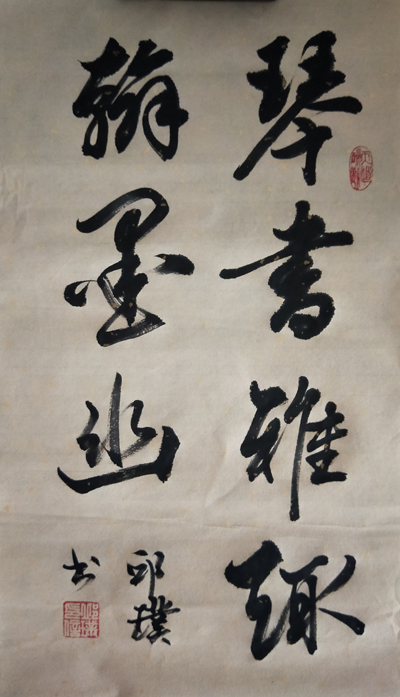 琴書雅
翰墨幽
邱璞
书